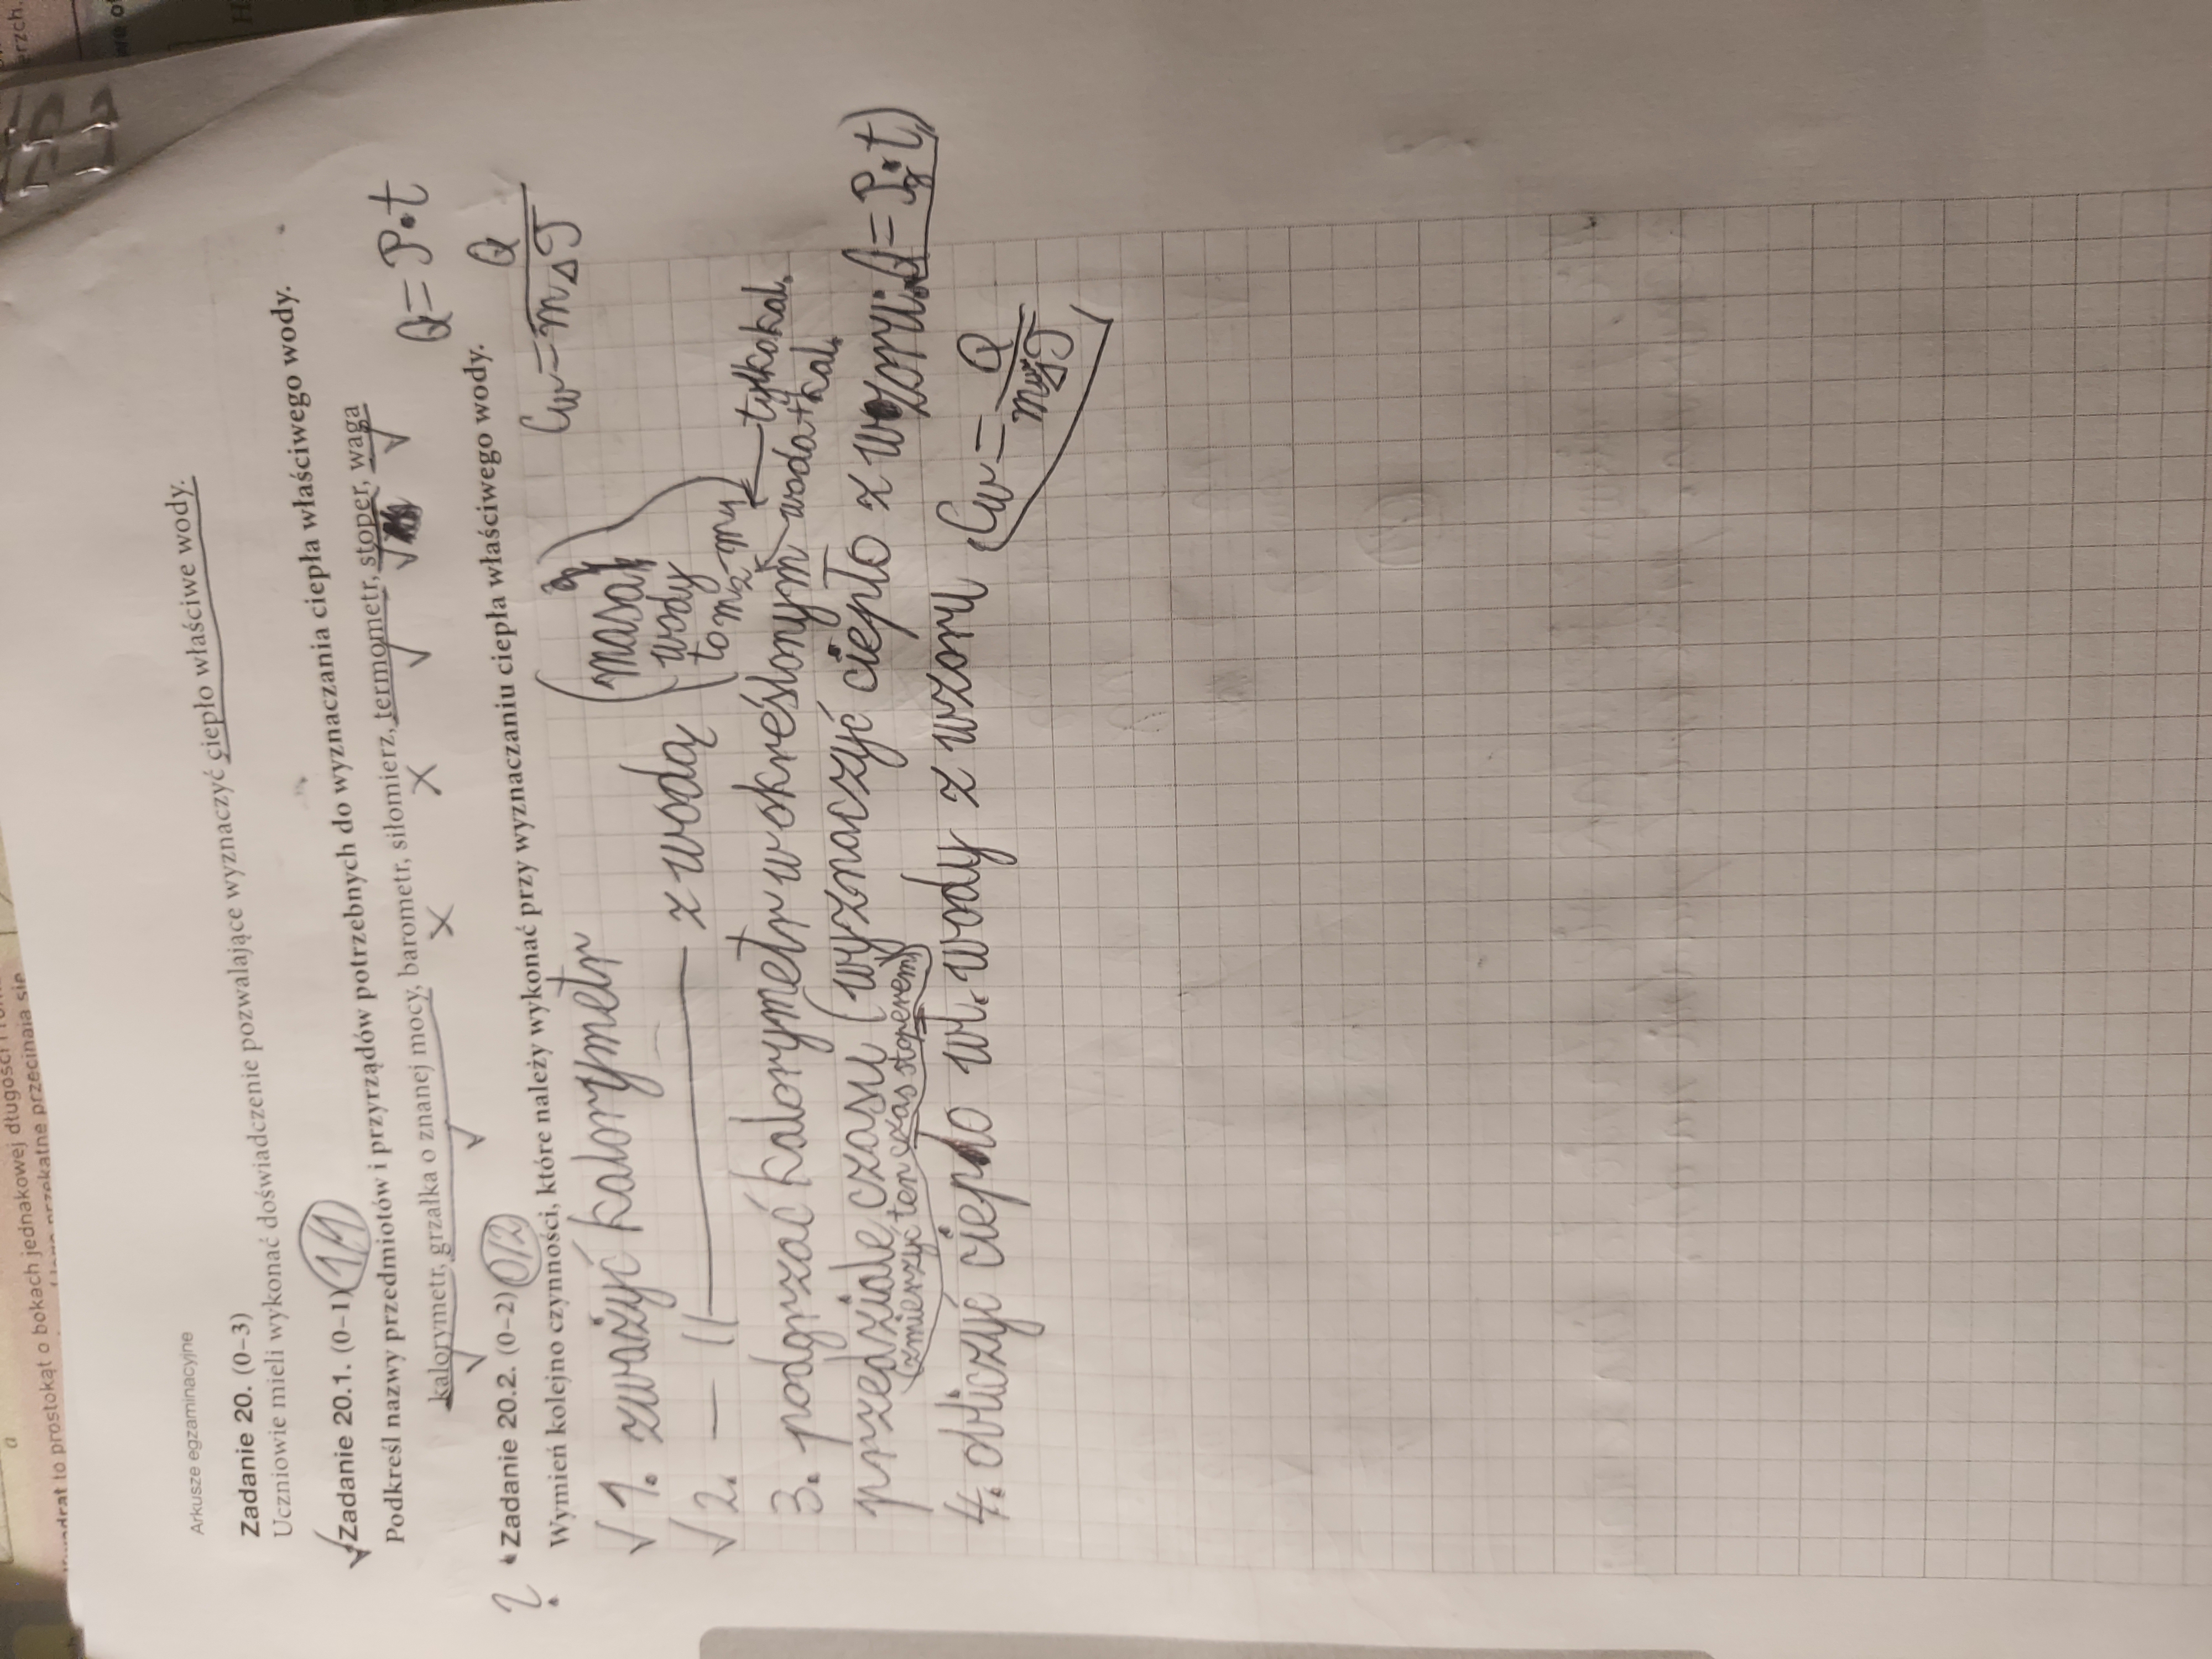 Arkusze egzaminacyjne
Zadanie 20. (0–3)
Uczniowie mieli wykonać doświadczenie pozwalające wyznaczyć ciepło właściwe wody.
Zadanie 20.1. (0–1) 1/1
Podkreśl nazwy przedmiotów i przyrządów potrzebnych do wyznaczania ciepła właściwego wody.
kalorymetr, grzałka o znanej mocy, barometr, siłomierz, termometr, stoper, waga
Q = P·t
Zadanie 20.2. (0–2) 0/2
Wymień kolejno czynności, które należy wykonać przy wyznaczaniu ciepła właściwego wody.
Cw = Q / mΔT
1. zważyć kalorymetr
2. — || — z wodą (masa wody to m2 - m1)
tylko kal.
woda + kal.
3. podgrzać kalorymetr w określonym
przedziale czasu (wyznaczyć ciepło z wzoru: Q = Pg·t)
(zmierzyć ten czas stoperem)
4. obliczyć ciepło wł. wody z wzoru Cw = Q / mwΔT